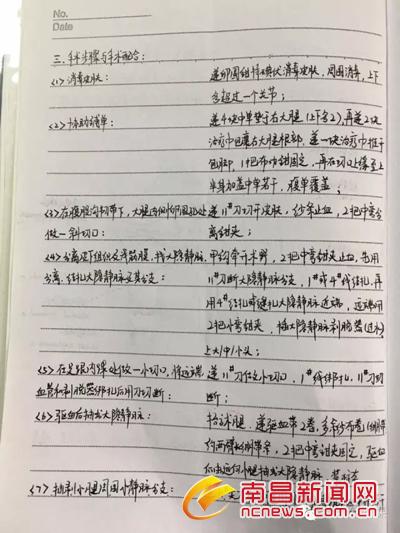 No.
Date
三.手术步骤与手术配合:
<1>消毒皮肤: 递卵圆钳夹碘伏消毒皮肤,周围消毒,上下
各超过一个关节;
<2>协助铺单: 递4块中单垫于右大腿(上下各2),再递2块
治疗巾包裹右大腿根部,递一块治疗巾
包脚,1#巾布巾钳固定,再在切口缘至上
半身加盖中单若干,腹单覆盖;
<3>在腹股沟韧带下,大腿内侧卵圆窝处 递11#刀切开皮肤,纱条止血,2把中弯
做一斜切口: 钳夹;
<4>分离皮下组织及浅筋膜,找大隐静脉, 甲钩牵开术野,2把中弯钳止血,
分离,结扎大隐静脉及其分支: 11#刀切断大隐静脉分支,1#或4#线结扎,再
用4#线结扎或缝扎大隐静脉近端,远端用
2把中弯钳夹,插大隐静脉剥脱器(过水)
上大/中/小头;
<5>在足踝内踝处做一小切口,将远端 递11#刀 小切口,1#线绑扎,11#刀切
血管和剥脱器绑扎后用刀切断: 断;
<6>驱血后抽出大隐静脉: 抬高术腿,递驱血带2卷,
2把中弯钳夹固定,驱血
后 抽出大隐静脉
<7>抽剥小腿周围小静脉分支:
南昌新闻网
ncnews.com.cn